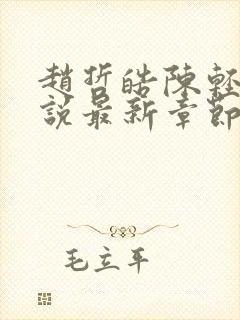 趙哲皓陳輕
說最新章節
毛立平